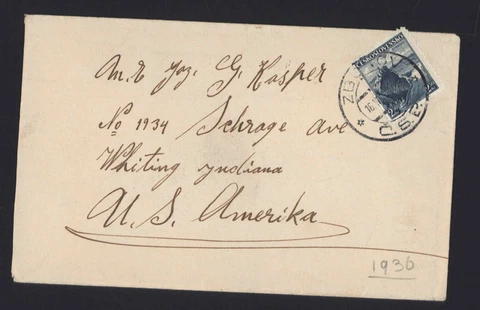 Mr Joz. G. Kasper
No 1934 Schrage ave
Whiting yndiana
U. S. Amerika
ČESKOSLOVENSKO
Č.S.R.
1936